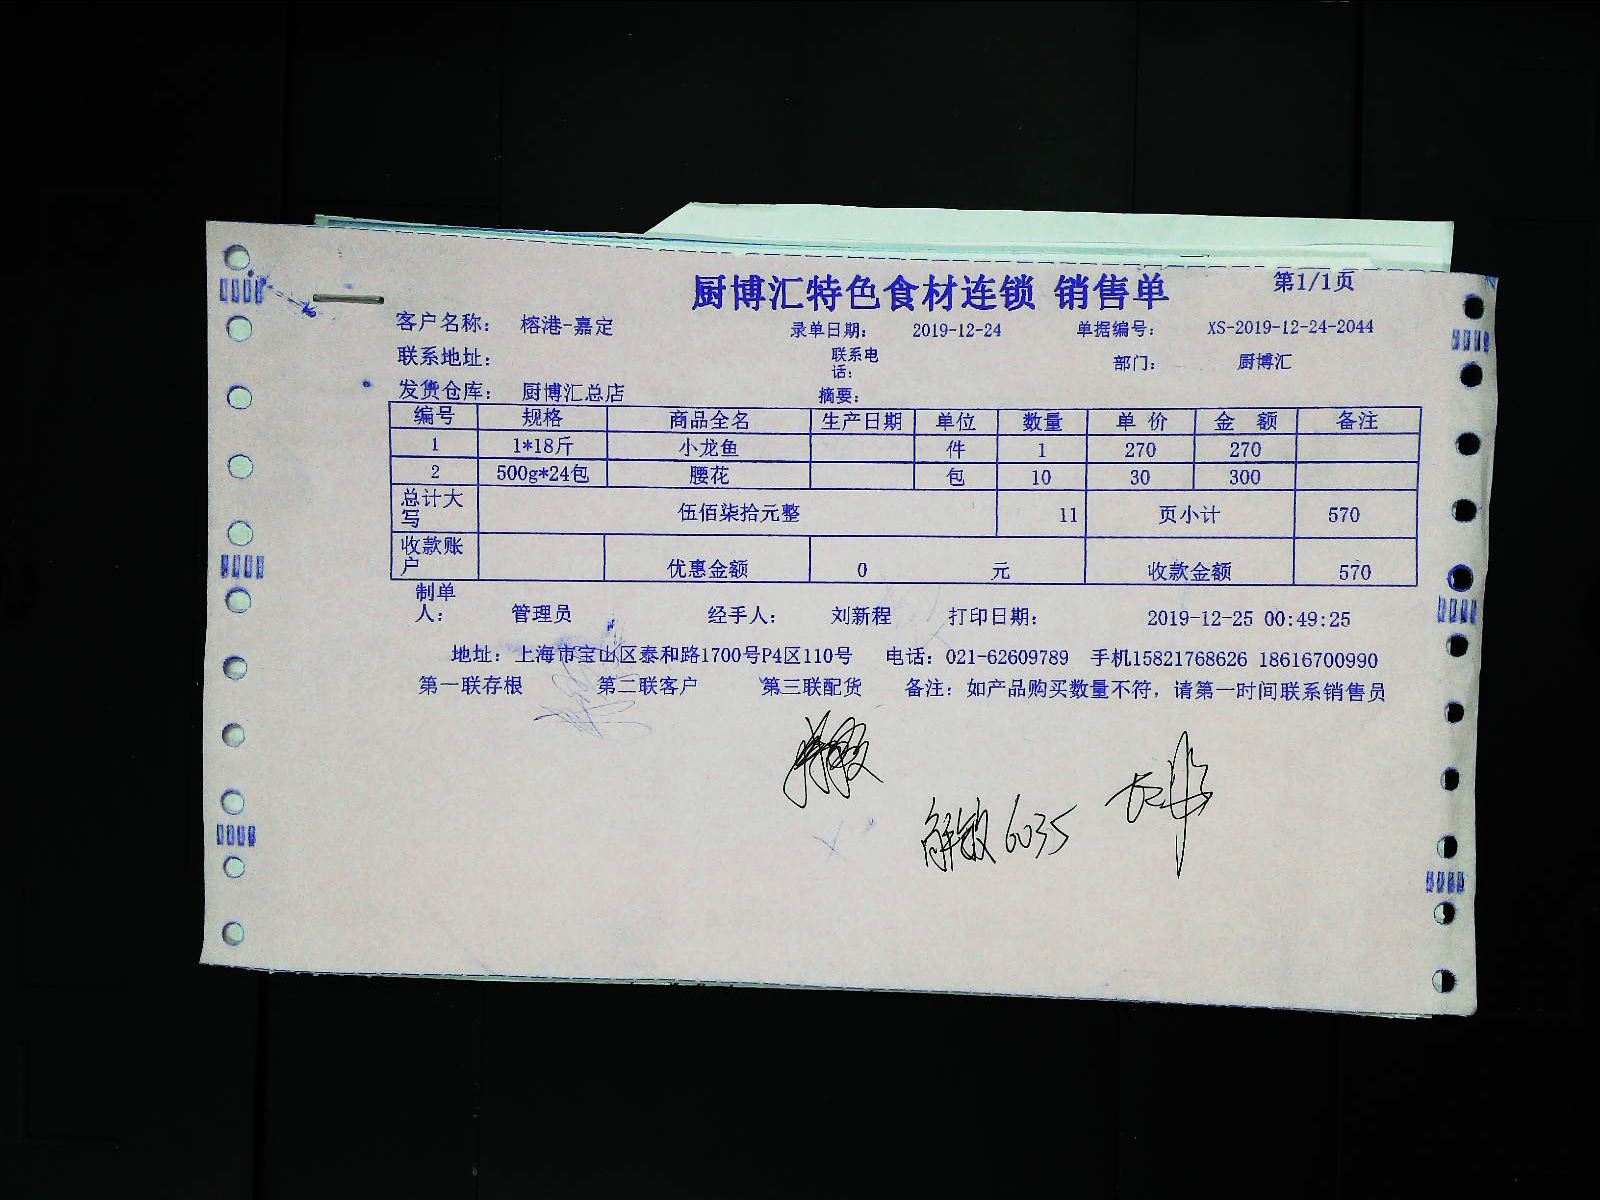 厨博汇特色食材连锁 销售单 第1/1页
客户名称： 榕港-嘉定 录单日期： 2019-12-24 单据编号： XS-2019-12-24-2044
联系地址： 联系电话： 部门： 厨博汇
发货仓库： 厨博汇总店 摘要：
编号 规格 商品全名 生产日期 单位 数量 单 价 金 额 备注
1 1*18斤 小龙鱼 件 1 270 270
2 500g*24包 腰花 包 10 30 300
总计大写 伍佰柒拾元整 11 页小计 570
收款账户 优惠金额 0 元 收款金额 570
制单人： 管理员 经手人： 刘新程 打印日期： 2019-12-25 00:49:25
地址：上海市宝山区泰和路1700号P4区110号 电话：021-62609789 手机15821768626 18616700990
第一联存根 第二联客户 第三联配货 备注：如产品购买数量不符，请第一时间联系销售员
6035